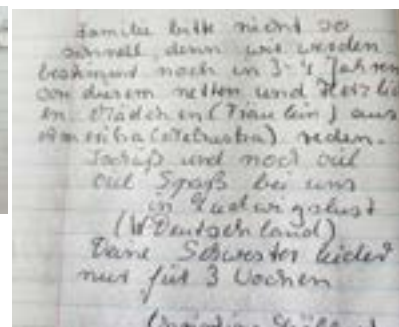 Familie bitte nicht so
schnell, denn wir werden
bestimmt noch in 3-4 Jahren
von diesem netten und
en Mädchen (Fräulein) aus
Amerika (Nebraska) reden.
und noch viel
viel Spaß bei uns
in Ludwigslust
(Deutschland)
Deine Schwester leider
nur für 3 Wochen